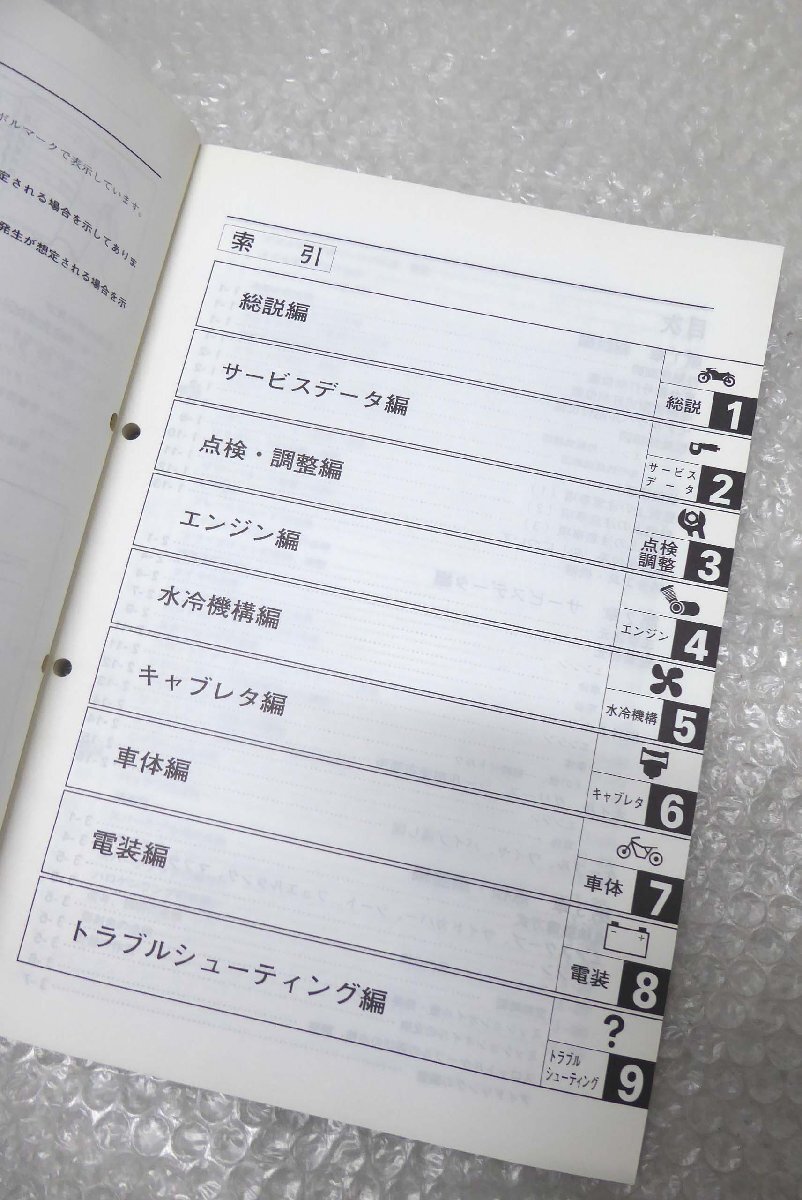 ボルマークで表示しています。
定される場合を示してありま
発生が想定される場合を示
索 引
総説編
総説
1
サービスデータ編
サービス
データ
2
点検・調整編
点検
調整
3
エンジン編
エンジン
4
水冷機構編
水冷機構
5
キャブレタ編
キャブレタ
6
車体編
車体
7
電装編
電装
8
トラブルシューティング編
?
トラブル
シューティング
9